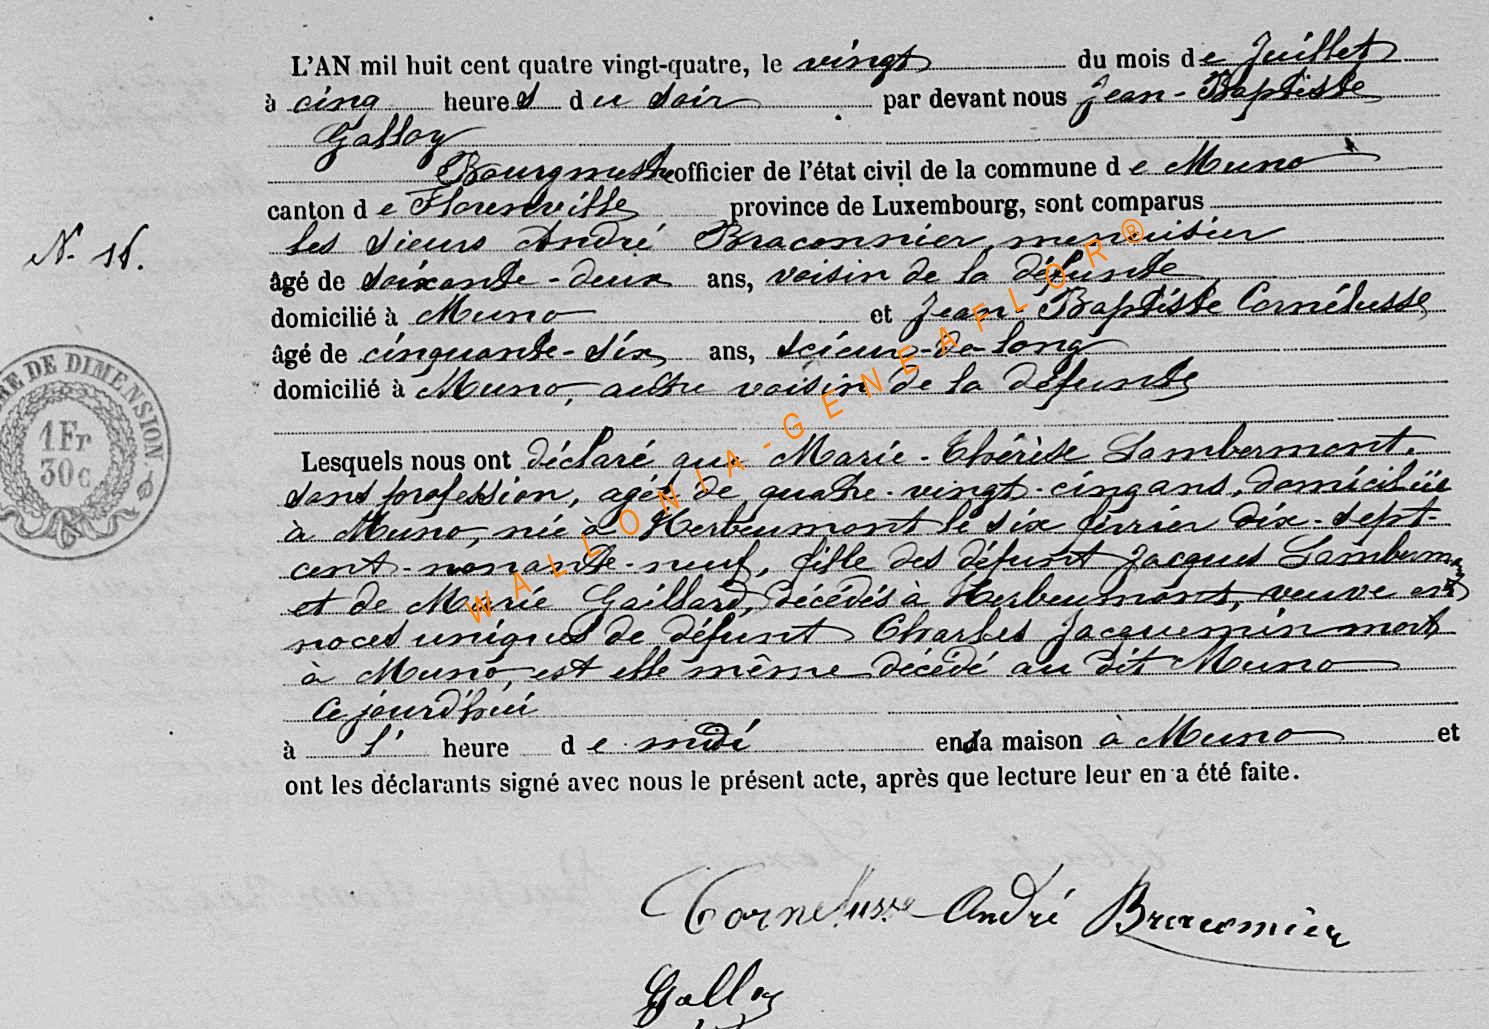 L'AN mil huit cent quatre vingt-quatre, le vingt du mois de Juillet
à cinq heures du soir par devant nous Jean-Baptiste
Galloy
Bourgmestre officier de l'état civil de la commune de Muno
canton de Florenville province de Luxembourg, sont comparus
les sieurs André Braconnier, menuisier
âgé de soixante-deux ans, voisin de la défunte
domicilié à Muno et Jean-Baptiste Cornélusse
âgé de cinquante-six ans, scieur-de-long
domicilié à Muno, autre voisin de la défunte
Lesquels nous ont déclaré que Marie-Thérèse Lambermont,
sans profession, agée de quatre-vingt-cinq ans, domiciliée
à Muno, née à Herbeumont le six février dix-sept-
cent-nonante-neuf, fille des défunt Jacques Lambermont
et de Marie Gaillard, décédés à Herbeumont, veuve en
noces uniques de défunt Charles Jacquemin mort
à Muno, est elle même décédé au dit Muno
ce jourd'hui
à l' heure de midi en sa maison à Muno et
ont les déclarants signé avec nous le présent acte, après que lecture leur en a été faite.
Cornelusse André Braconnier
Galloy
N.
DE DIMENSION
1 Fr
30 c
WALLONIA-GENEAFLOR®